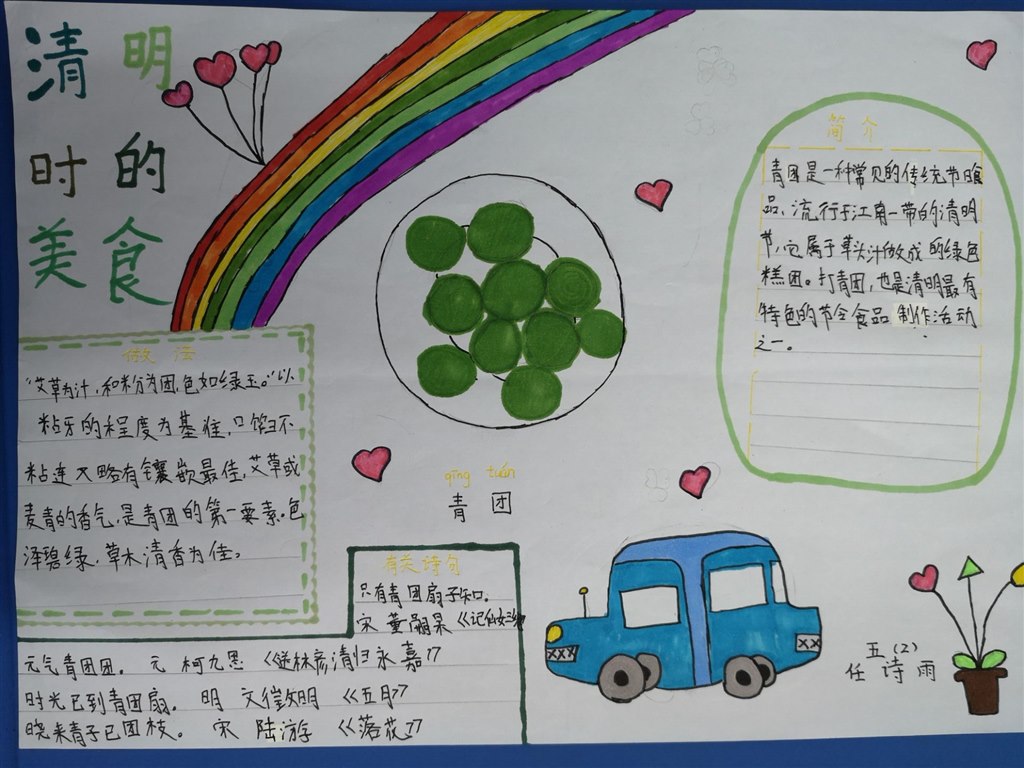 清明
时的
美食
简介
青团是一种常见的传统节日食
品，流行于江南一带的清明
节，它属于草头汁做成的绿色
糕团。打青团，也是清明最有
特色的节令食品制作活动
之一。
做法
“艾草为汁，和粉为团，色如绿玉。”以
粘牙的程度为基准，口馅不
粘连大略有镶嵌最佳，艾草或
麦青的香气，是青团的第一要素。色
泽碧绿，草木清香为佳。
qīng tuán
青团
有关诗句
只有青团扇子知。
宋 董嗣杲《记仙姑
元气青团团。 元 柯九思 《送林彦清归永嘉》
时光已到青团扇。 明 文徵明 《五月》
晓来青子已团枝。 宋 陆游 《落花》
五(2)
任诗雨